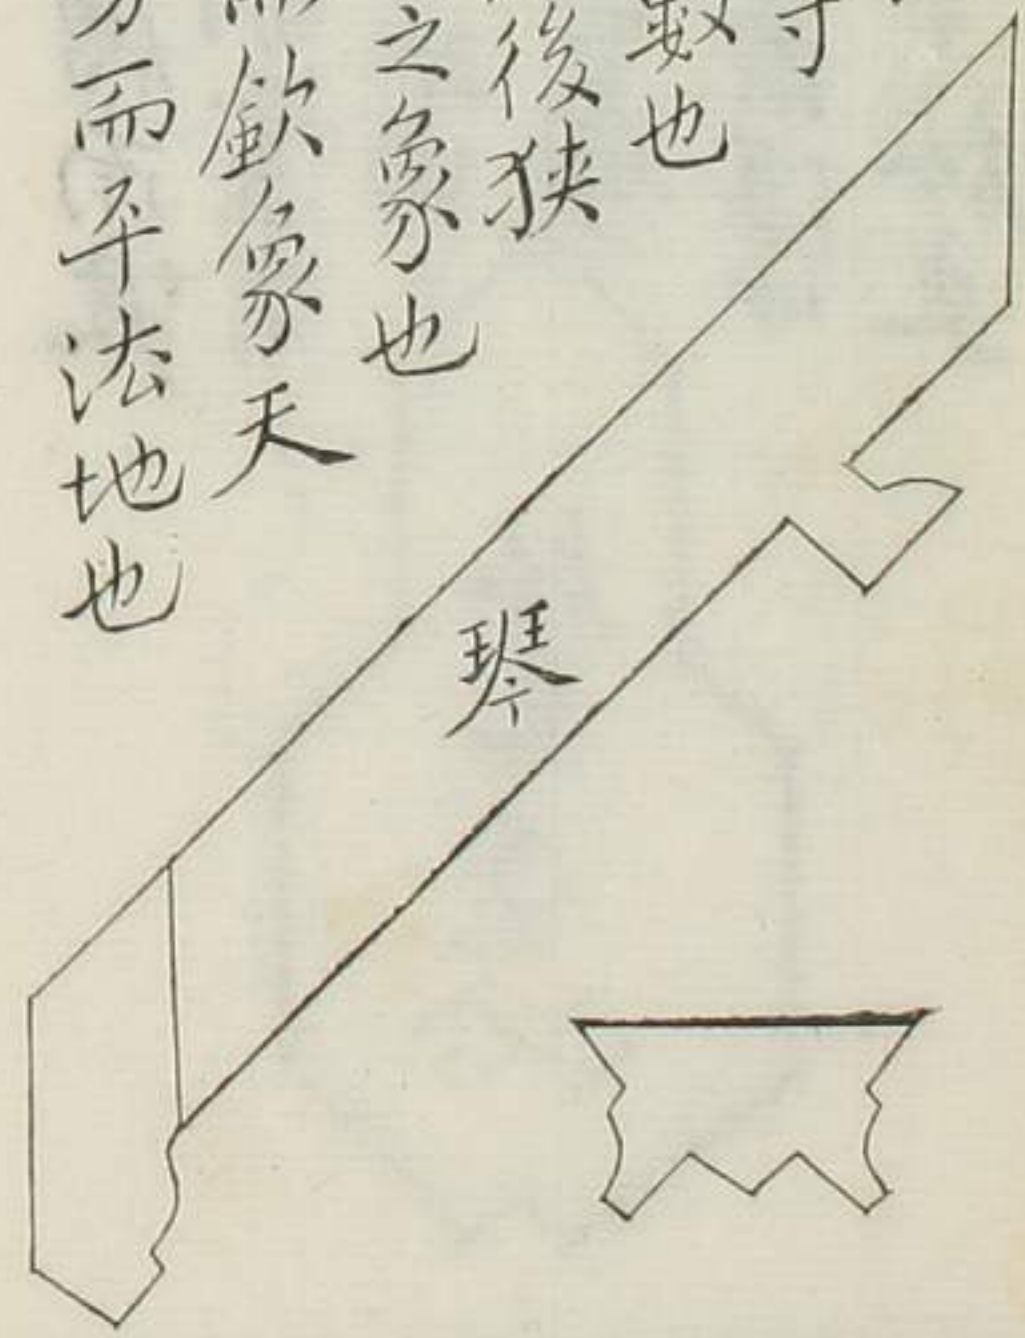 寸
數也
後狹
之象也
而歛象天
方而平法地也
琴